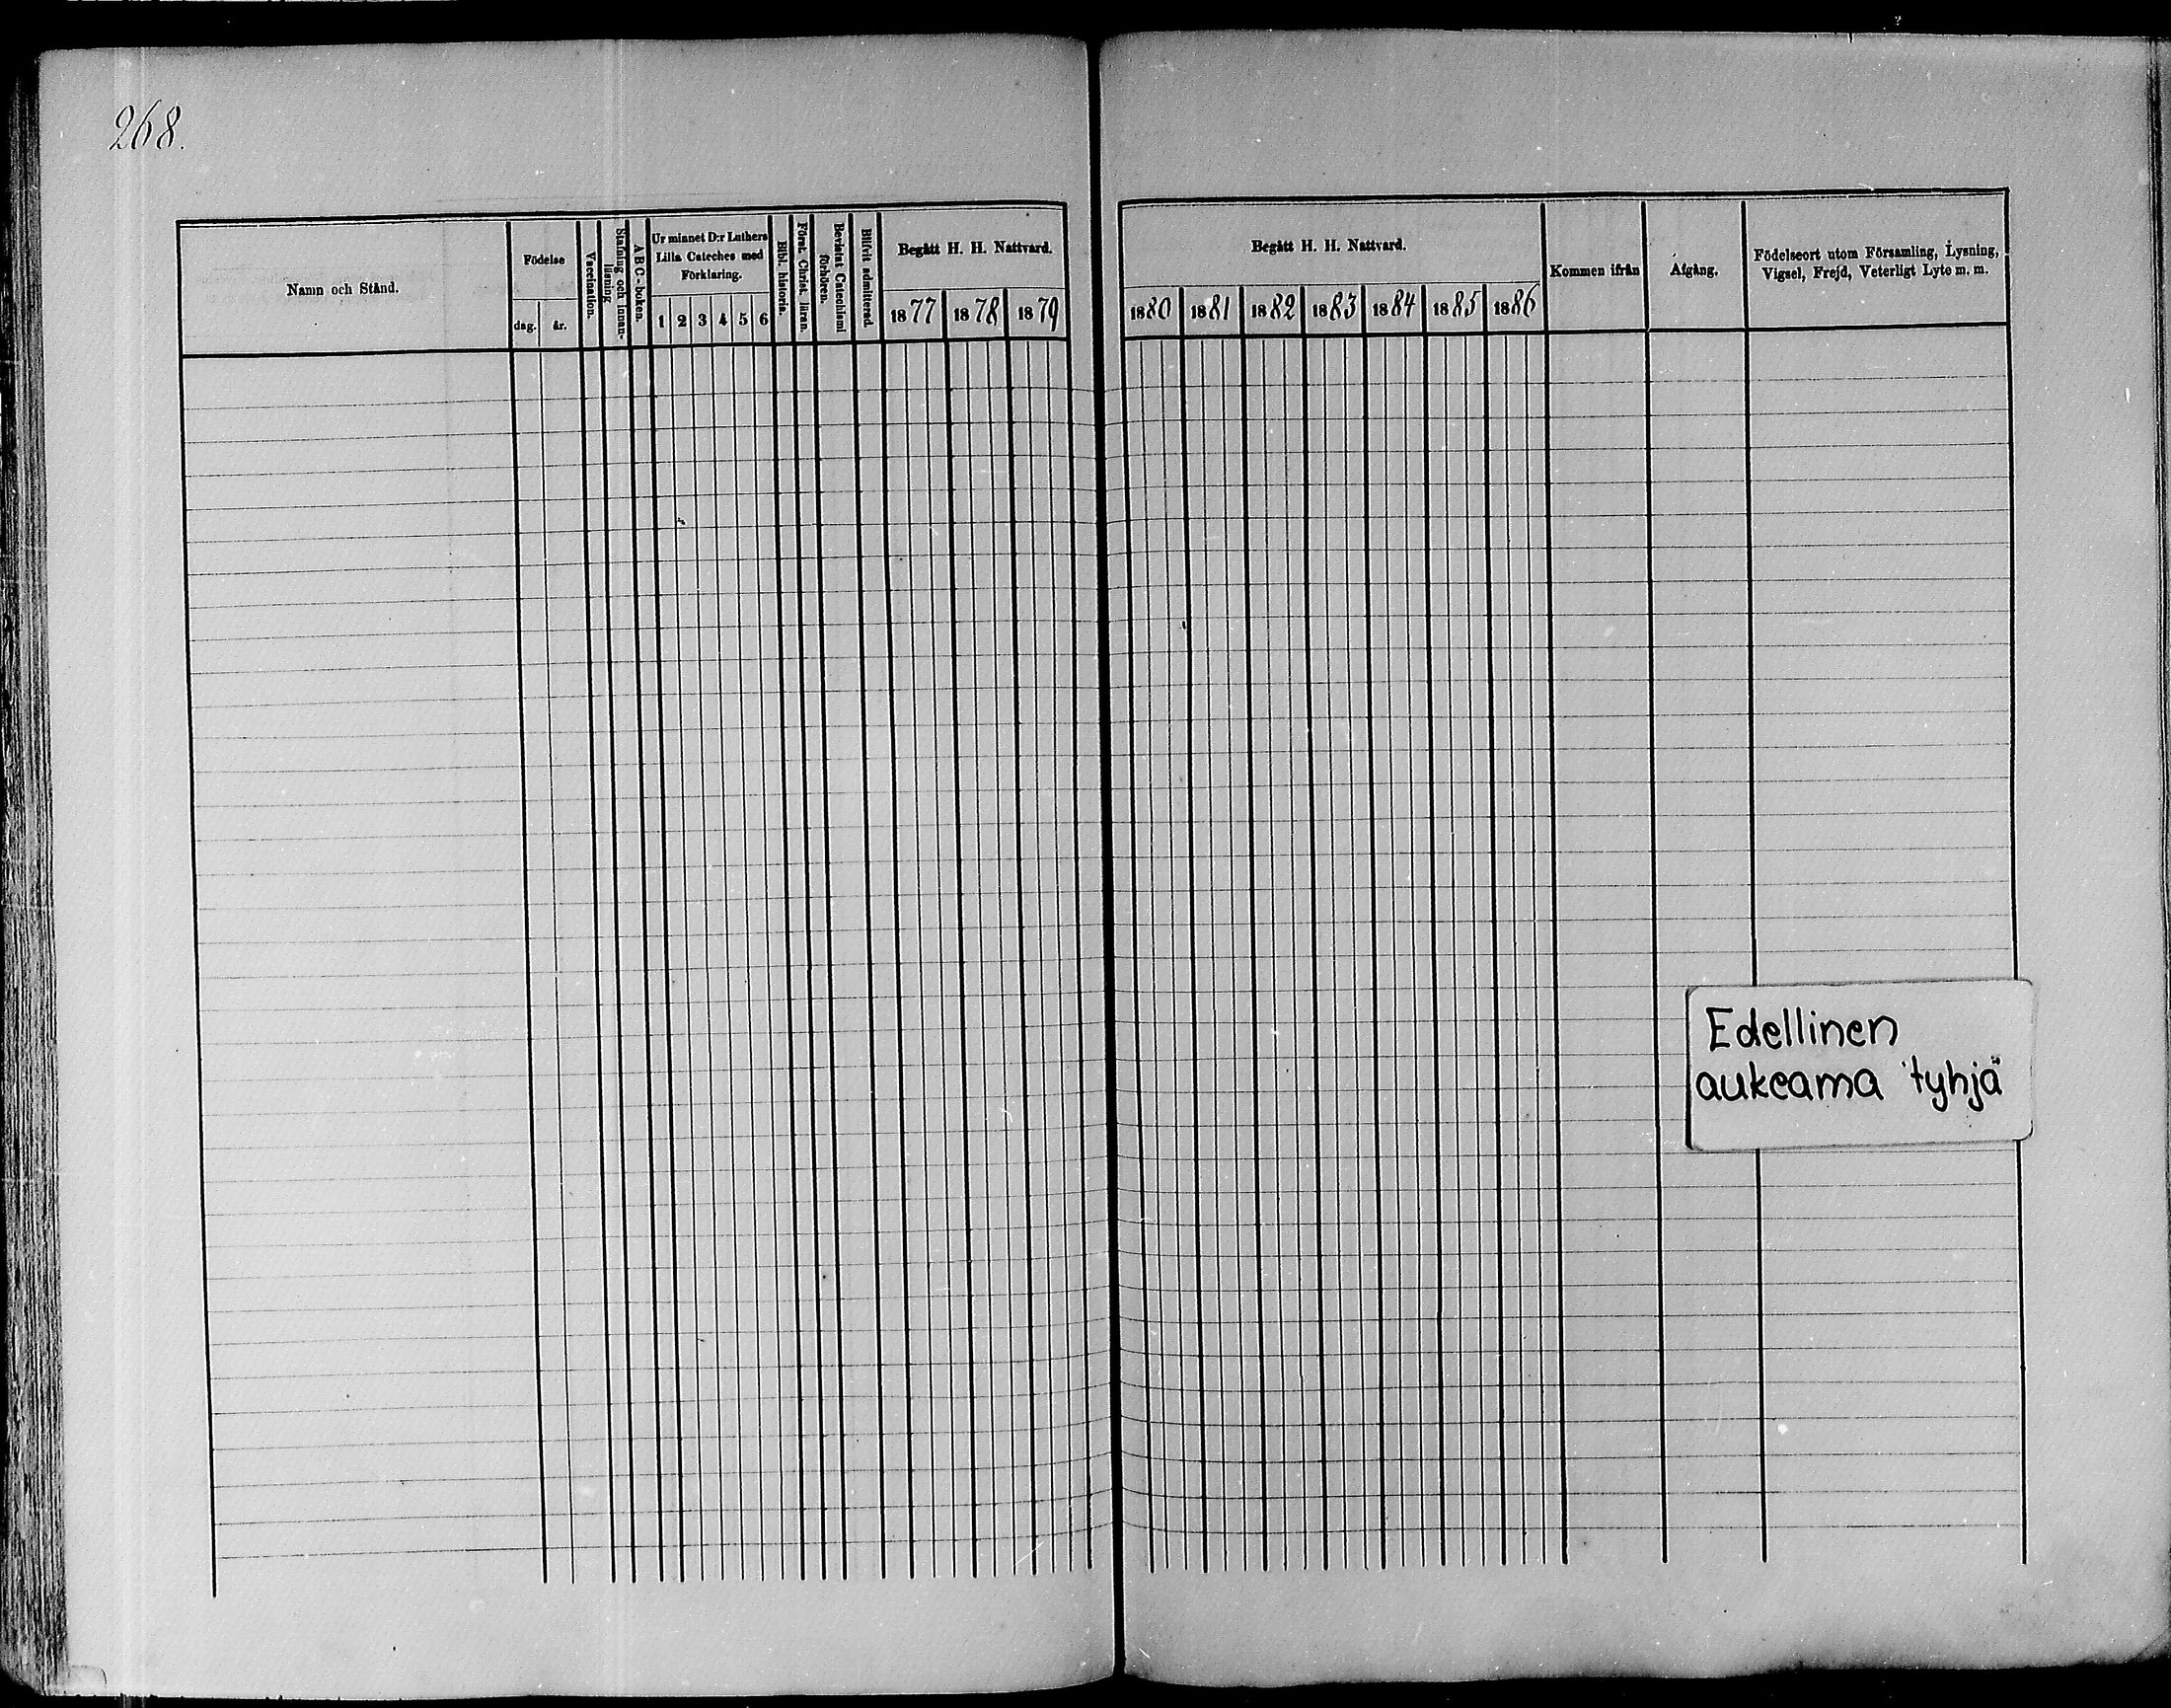 268.
Namn och Stånd.
Födelse
dag.
år.
Vaccination.
Stafning och innan-
läsning
A B C - boken.
Ur minnet D:r Luthers
Lilla Cateches med
Förklaring.
1 2 3 4 5 6
Bibl. historia.
Först. Christ. läran.
Bevistat Catechismi
förhören.
Blifvit admitterad.
Begått H. H. Nattvard.
1877 1878 1879
Begått H. H. Nattvard.
1880 1881 1882 1883 1884 1885 1886
Kommen ifrån
Afgång.
Födelseort utom Församling, Lysning,
Vigsel, Frejd, Veterligt Lyte m. m.
Edellinen
aukeama tyhjä